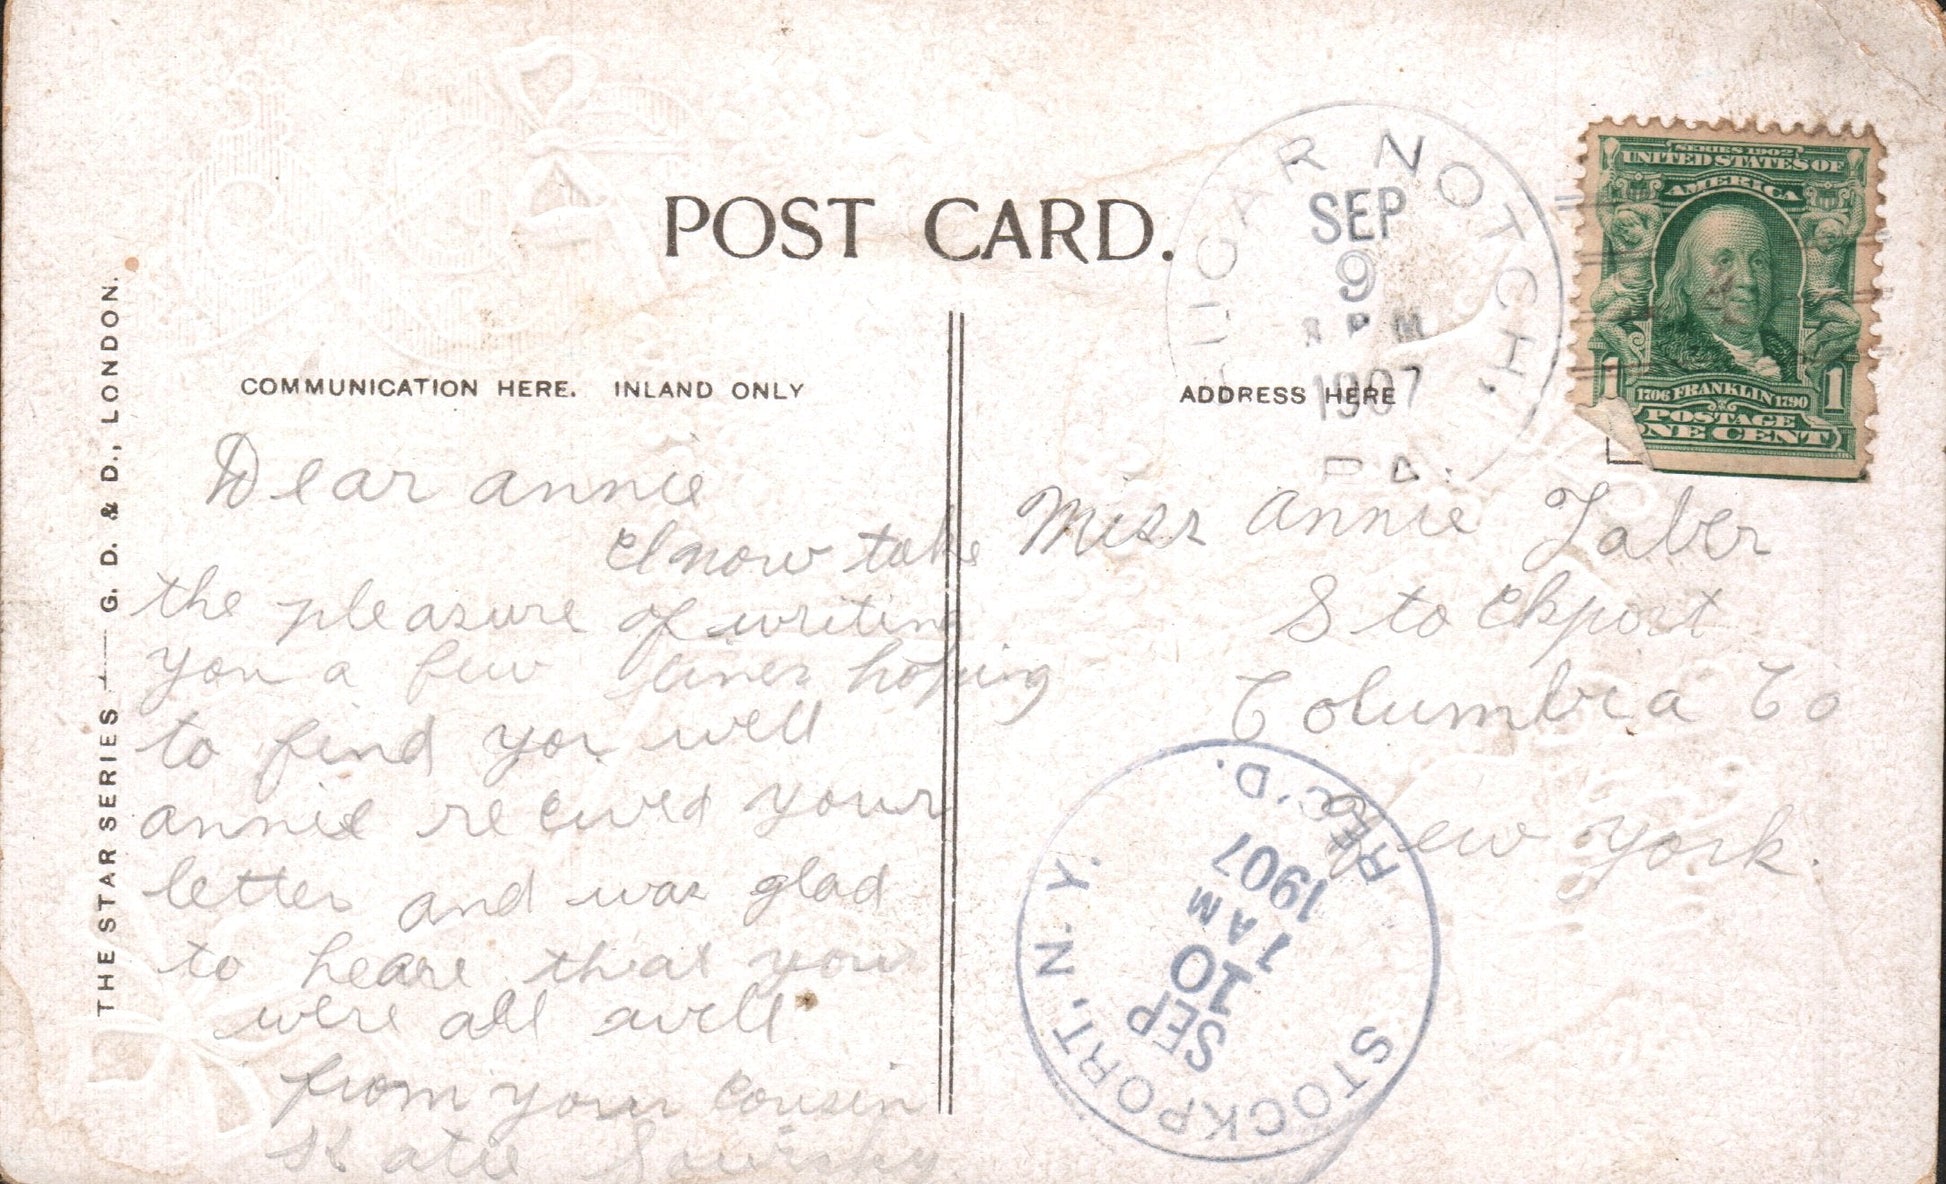 POST CARD.
COMMUNICATION HERE. INLAND ONLY
ADDRESS HERE
THE STAR SERIES — G. D. & D., LONDON.
Dear annie
I now take
the pleasure of writing
you a few lines hoping
to find you well
annie recived your
letter and was glad
to heare that your
were all well
from your cousin
Katie
Miss Annie Taber
Stockport
Columbia Co
New York.
NOTCH,
SEP
9
8 PM
1907
PA.
SERIES 1902
UNITED STATES OF
AMERICA
1706 FRANKLIN 1790
1 1
POSTAGE
ONE CENT
STOCKPORT, N.Y.
SEP
10
1 AM
1907
REC'D.